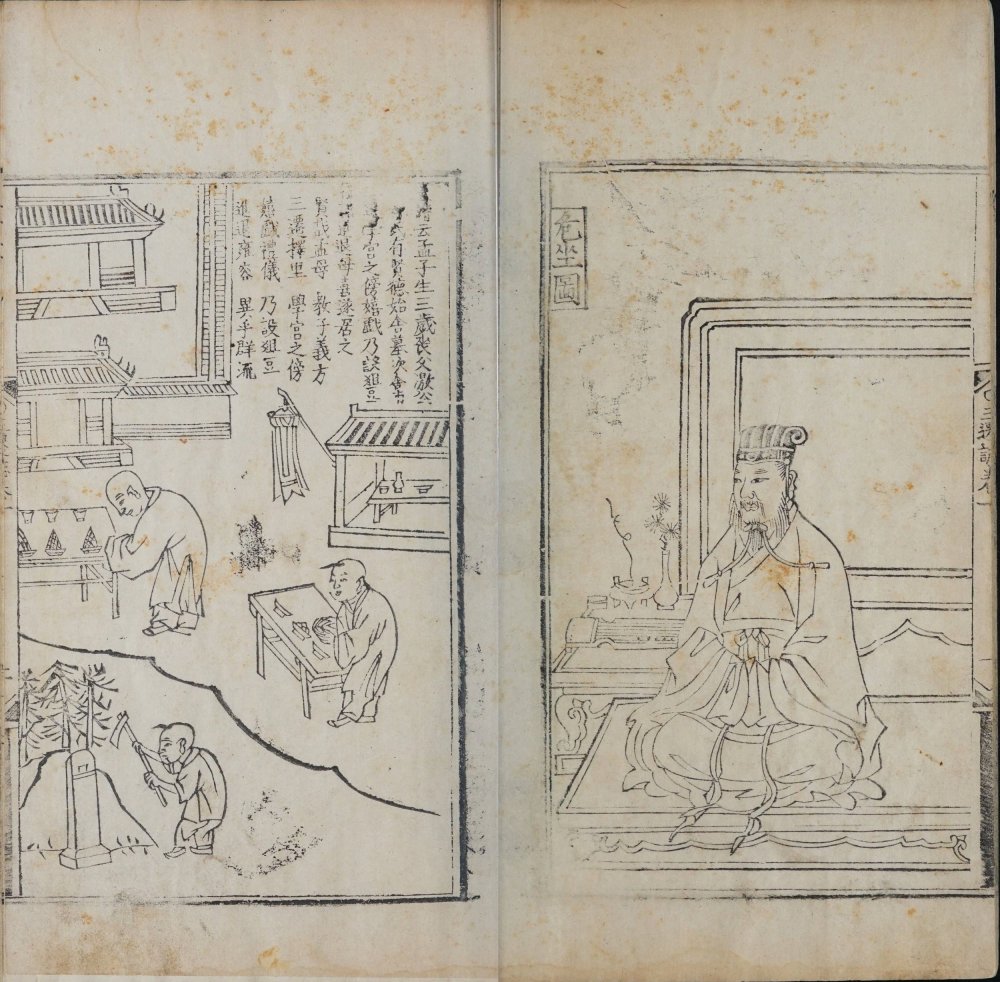 危坐圖
云孟子生三歲喪父激公
氏有賢德始舍墓次舍市
學宮之傍嬉戲乃設俎豆
退母喜遂居之
賢哉孟母 教子義方
三遷擇里 學宮之傍
嬉戲禮儀 乃設俎豆
進退雍容 異乎群流